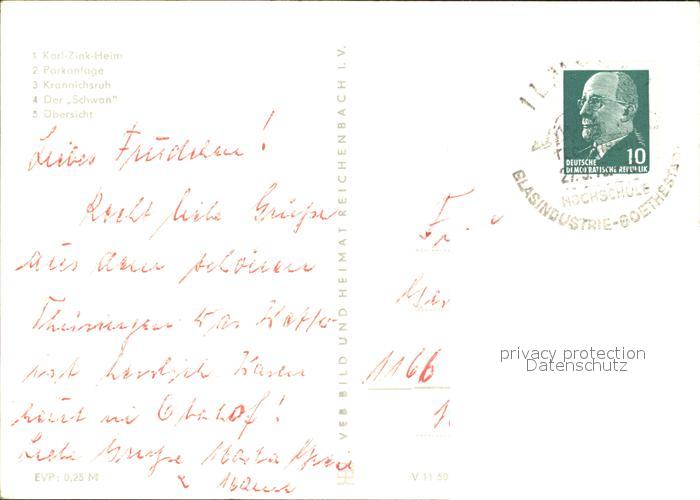 1 Karl-Zink-Heim
2 Parkanlage
3 Krannichsruh
4 Der „Schwan"
5 Übersicht
Liebes Friedchen!
Recht liebe Grüße
aus dem schönen
Thüringen Das Wetter
ist herrlich Waren
heut in Oberhof!
Liebe Grüße
EVP: 0,25 M
VEB BILD UND HEIMAT REICHENBACH I. V.
V 11 50
1166
DEUTSCHE
DEMOKRATISCHE REPUBLIK
10
HOCHSCHULE
GLASINDUSTRIE-GOETHESTADT
privacy protection
Datenschutz